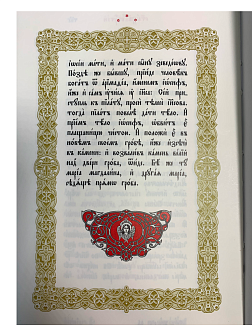 їѡсі́и ма́ти, и҆ ма́ти сы̑нꙋ зеведе́ѡвꙋ.
По́здѣ же бы́вшꙋ, прїи́де человѣ́къ
бога́тъ ѿ а҆рїмаѳе́а, и҆́менемъ їѡ́сифъ,
и҆́же и҆ са́мъ ᲂу҆чи́сѧ ᲂу҆ їи҃са: Се́й при-
стꙋ́пль къ пїла́тꙋ, проси́ тѣлесѐ їи҃сова.
тогда̀ пїла́тъ повелѣ̀ да́ти тѣ́ло. И҆
прїе́мъ тѣ́ло їѡ́сифъ, ѡ҆бви́тъ є҆̀
плащани́цею чи́стою. И҆ положѝ є҆̀ въ
но́вѣмъ свое́мъ гро́бѣ, и҆́же и҆зсѣчѐ
въ ка́мени: и҆ возвали́въ ка́мень ве́лїй
над̾ двє́ри гро́ба, ѿи́де. Бѣ́ же тꙋ̀
марі́а магдали́на, и҆ дрꙋга́ѧ марі́а,
сѣдѧ́щѣ прѧ́мѡ гро́ба.